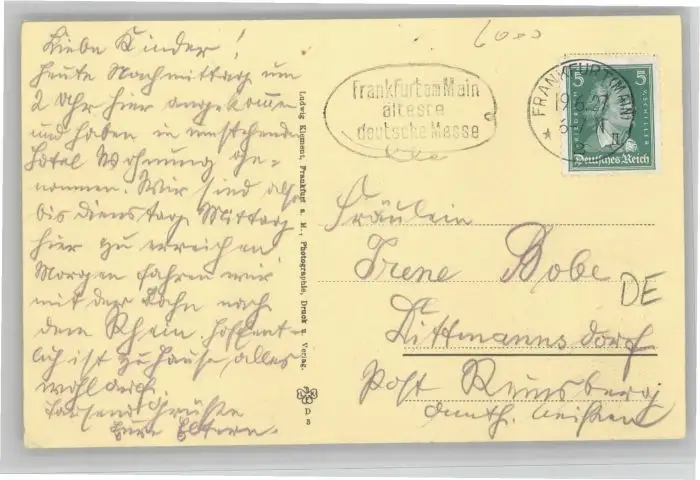 Liebe Kinder!
heute Nachmittag um
2 Uhr hier angekomme
und haben in umstehende
Hotel Wohnung ge-
nommen. Wir sind also
bis Dienstag Mittag
hier zu erreichen
Morgen fahren wir
mit der Bahn nach
dem Rhein hoffent-
lich ist zuhause alles
wohlauf.
Tausend Grüße
Eure Eltern.
Ludwig Klement, Frankfurt a. M., Photographie, Druck u. Verlag.
D 8
6000
Frankfurt am Main
älteste
deutsche Messe
FRANKFURT (MAIN)
19.6.27
5 5
FRIEDRICH V. SCHILLER
Deutsches Reich
Fräulein
Irene Bobe
DE
Dittmannsdorf
Post Reinsberg